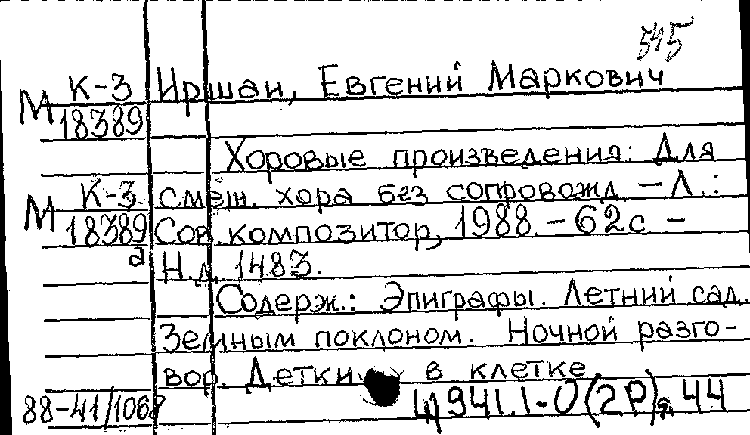 545
М К-3 Иршаи, Евгений Маркович
18389
Хоровые произведения: Для
М К-3 смеш. хора без сопровожд. – Л.:
18389 Сов. композитор, 1988. – 62 с –
а Н.д. 1483.
Содерж.: Эпиграфы. Летний сад.
Земным поклоном. Ночной разго-
вор. Детки в клетке.
88-41/1068 Щ941.1-0(2Р)я44